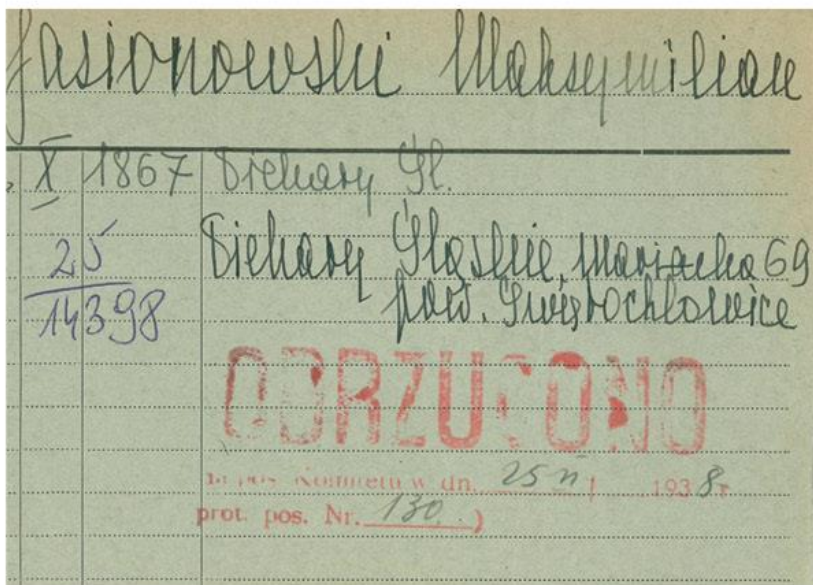 Jasionowski Maksymilian
. X 1867 Piekary Śl.
25 Piekary Śląskie, Mariacka 69
14398 pow. Świętochłowice
ODRZUCONO
na pos. Komitetu w dn. 25 VI 1938 r.
prot. pos. Nr. 130.)